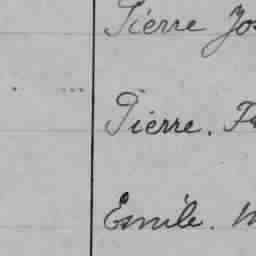 Pierre
Pierre.
Emile.